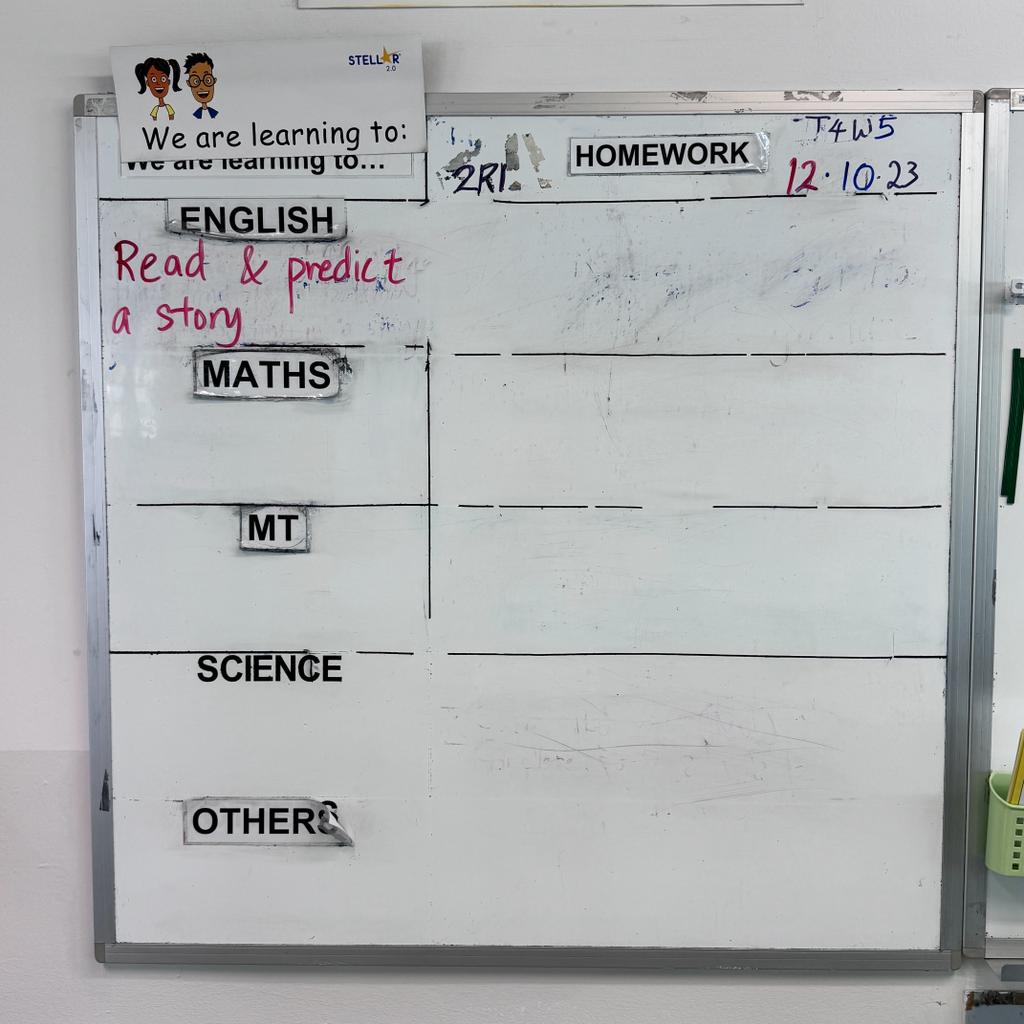 STELLAR
2.0
We are learning to:
We are learning to...
2R1
HOMEWORK
T4W5
12.10.23
ENGLISH
Read & predict
a story
MATHS
MT
SCIENCE
OTHERS